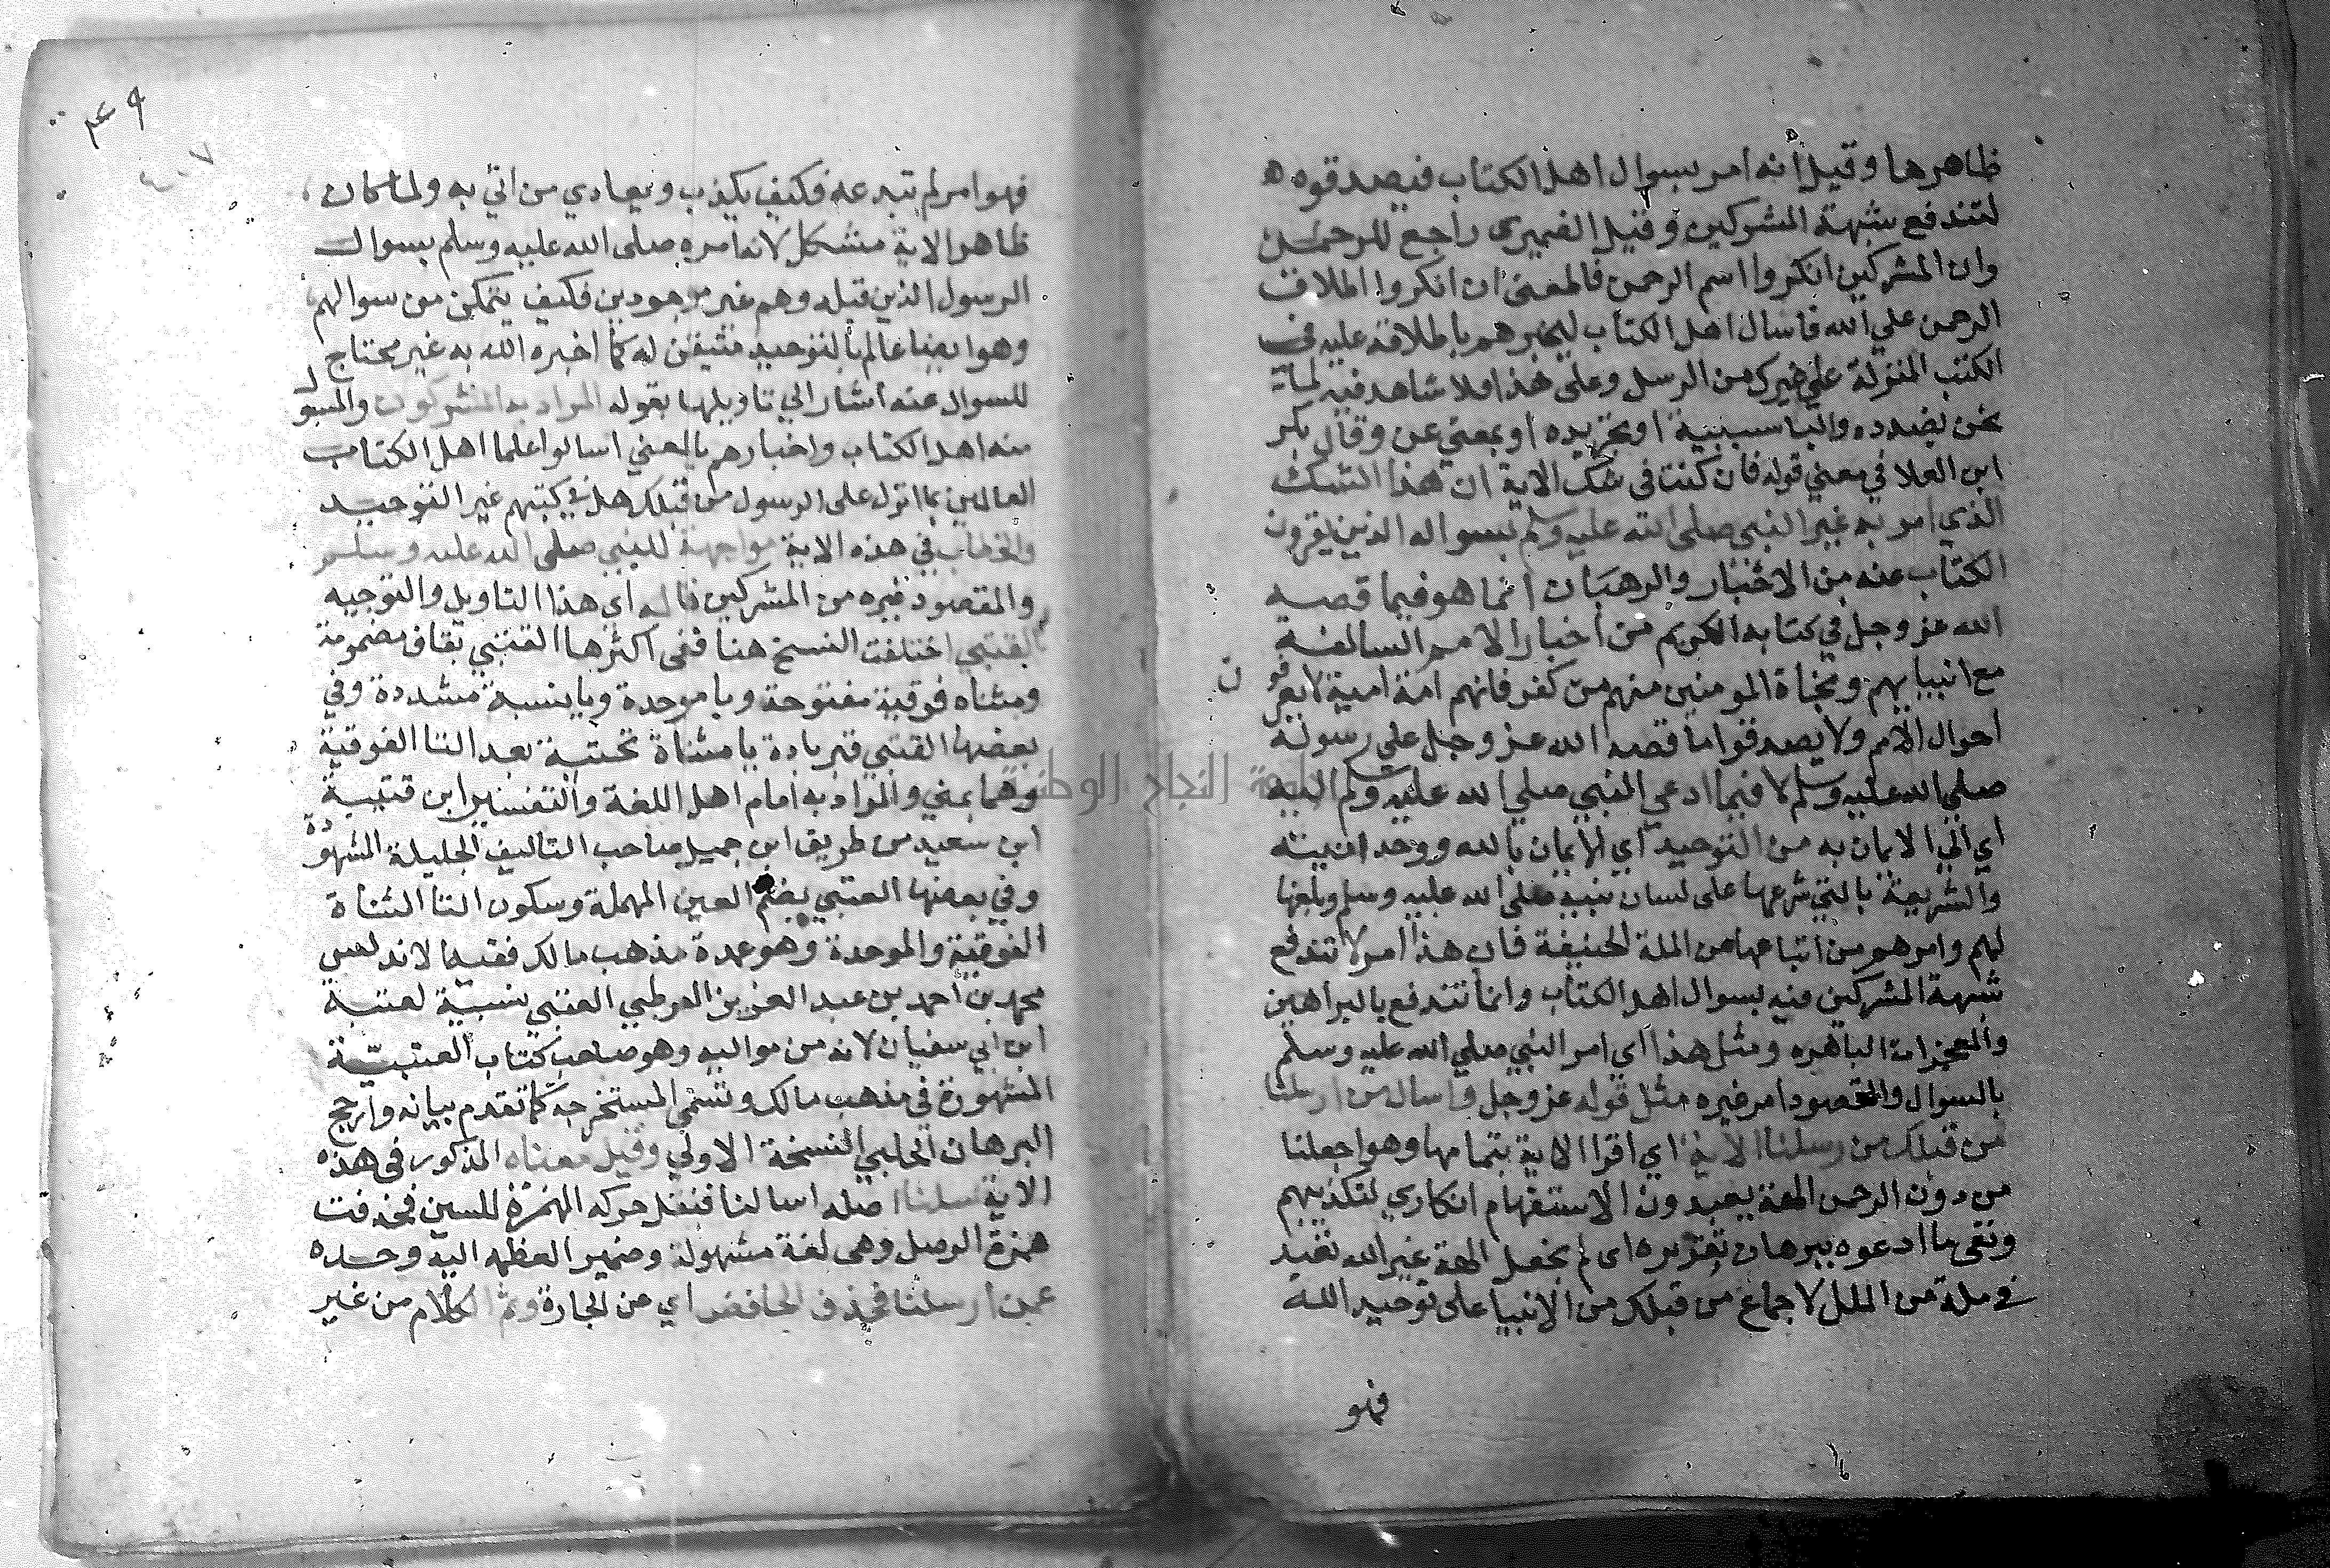 ظاهرها وقيل أنه امر بسوال اهل الكتاب فيصدقوه ه
لتندفع شبهة المشركين وقيل الضميرى راجع للرحمن
وان المشركين انكروا اسم الرحمن فالمعنى ان انكروا اطلاق
الرحمن علي الله فاسال اهل الكتاب ليخبرهم باطلاقه عليه في
الكتب المنزلة علي غيرك من الرسل وعلى هذا فلا شاهد فيه لما
نحن بصدده والبا سببية او تجريديه او بمعني عن وقال بكر
ابن العلا في معني قوله فان كنت في شك الاية ان هذا الشك
الذي امر به غير النبي صلى الله عليه وسلم بسواله الذين يقرون
الكتاب عنه من الاحبار والرهبان انما هو فيما قصه
الله عز وجل في كتابه الكريم من اخبار الامم السالفة
مع انبيايهم ونجاة المومنين منهم من كفر فانهم امة امية لايعرفون
احوال الامم ولا يصدقوا ما قصه الله عز وجل علي رسوله
صلي الله عليه وسلم لا فيما ادعى النبي صلي الله عليه وسلم اليه
اي الي الايمان به من التوحيد اي الايمان بالله ووحدانيته
والشريعة بالتي شرعها على لسان نبيه صلى الله عليه وسلم وبلغها
لهم وامرهم من اتباعها من الملة الحنيفة فان هذا امر لا تندفع
شبهة المشركين فيه بسوال اهل الكتاب وانما تندفع بالبراهين
والمعجزات الباهره ومثل هذا اي امر النبي صلي الله عليه وسلم
بالسوال والمقصود امر غيره مثل قوله عز وجل واسال من ارسلنا
من قبلك من رسلنا الاية اي اقرا الاية بتمامها وهو اجعلنا
من دون الرحمن الهة يعبدون الاستفهام انكاري لتكذيبهم
ونفى ما ادعوه ببرهان تقريره اى لم نجعل الهة غير الله تعبد
في ملة من الملل لاجماع من قبلك من الانبيا على توحيد الله
فهو
فهو امر لم تبدعه فكيف يكذب ويعادي من اتي به ولما كان
ظاهر الاية مشكل لانه امره صلى الله عليه وسلم بسوال
الرسول الذين قبله وهم غير موجودين فكيف يتمكن من سوالهم
وهو ايضا عالم بالتوحيد متيقن له كما اخبره الله به غير محتاج
للسوال عنه اشار الي تاويلها بقوله المراد به المشركون والمسول
منه اهل الكتاب واخبارهم بالمعني اسالوا علما اهل الكتاب
العالمين بما انزل على الرسول من قبلك هل في كتبهم غير التوحيد
والخطاب في هذه الاية مواجهة للنبي صلى الله عليه وسلم
والمقصود غيره من المشركين قاله اي هذا التاويل والتوجيه
القتبي اختلفت النسخ هنا ففى اكثرها القتبي بقاف مضمومة
ومثناه فوقية مفتوحة وبا موحدة ويا نسبة مشددة وفي
بعضها القتيبي بزيادة يا مثناة تحتية بعد التا الفوقية
وهما بمني والمراد به امام اهل اللغة والتفسير ابن قتيبة
ابن سعيد من طريق ابن جميل صاحب التاليف الجليلة المشهورة
وفي بعضها العتبي بضم العين المهملة وسكون التا المثناة
الفوقية والموحدة وهو عمدة مذهب مالك فقيه الاندلسي
محمد بن احمد بن عبد العزيز القرطبي العتبي نسبة لعتبة
ابن ابي سفيان لانه من مواليه وهو صاحب كتاب العتبية
المشهورة في مذهب مالك وتسمى المستخرجه كما تقدم بيانه وارجح
البرهان الحلبي النسخة الاولي وقيل معناه المذكور في هذه
الاية سلنا اصله اسالنا فنقل حركه الهمزة للسين فحذفت
همزة الوصل وهى لغة مشهولة وضمير العظمه اليه وحده
عمن ارسلنا فحذف الخافض اي عن الجارة وتم الكلام من غير